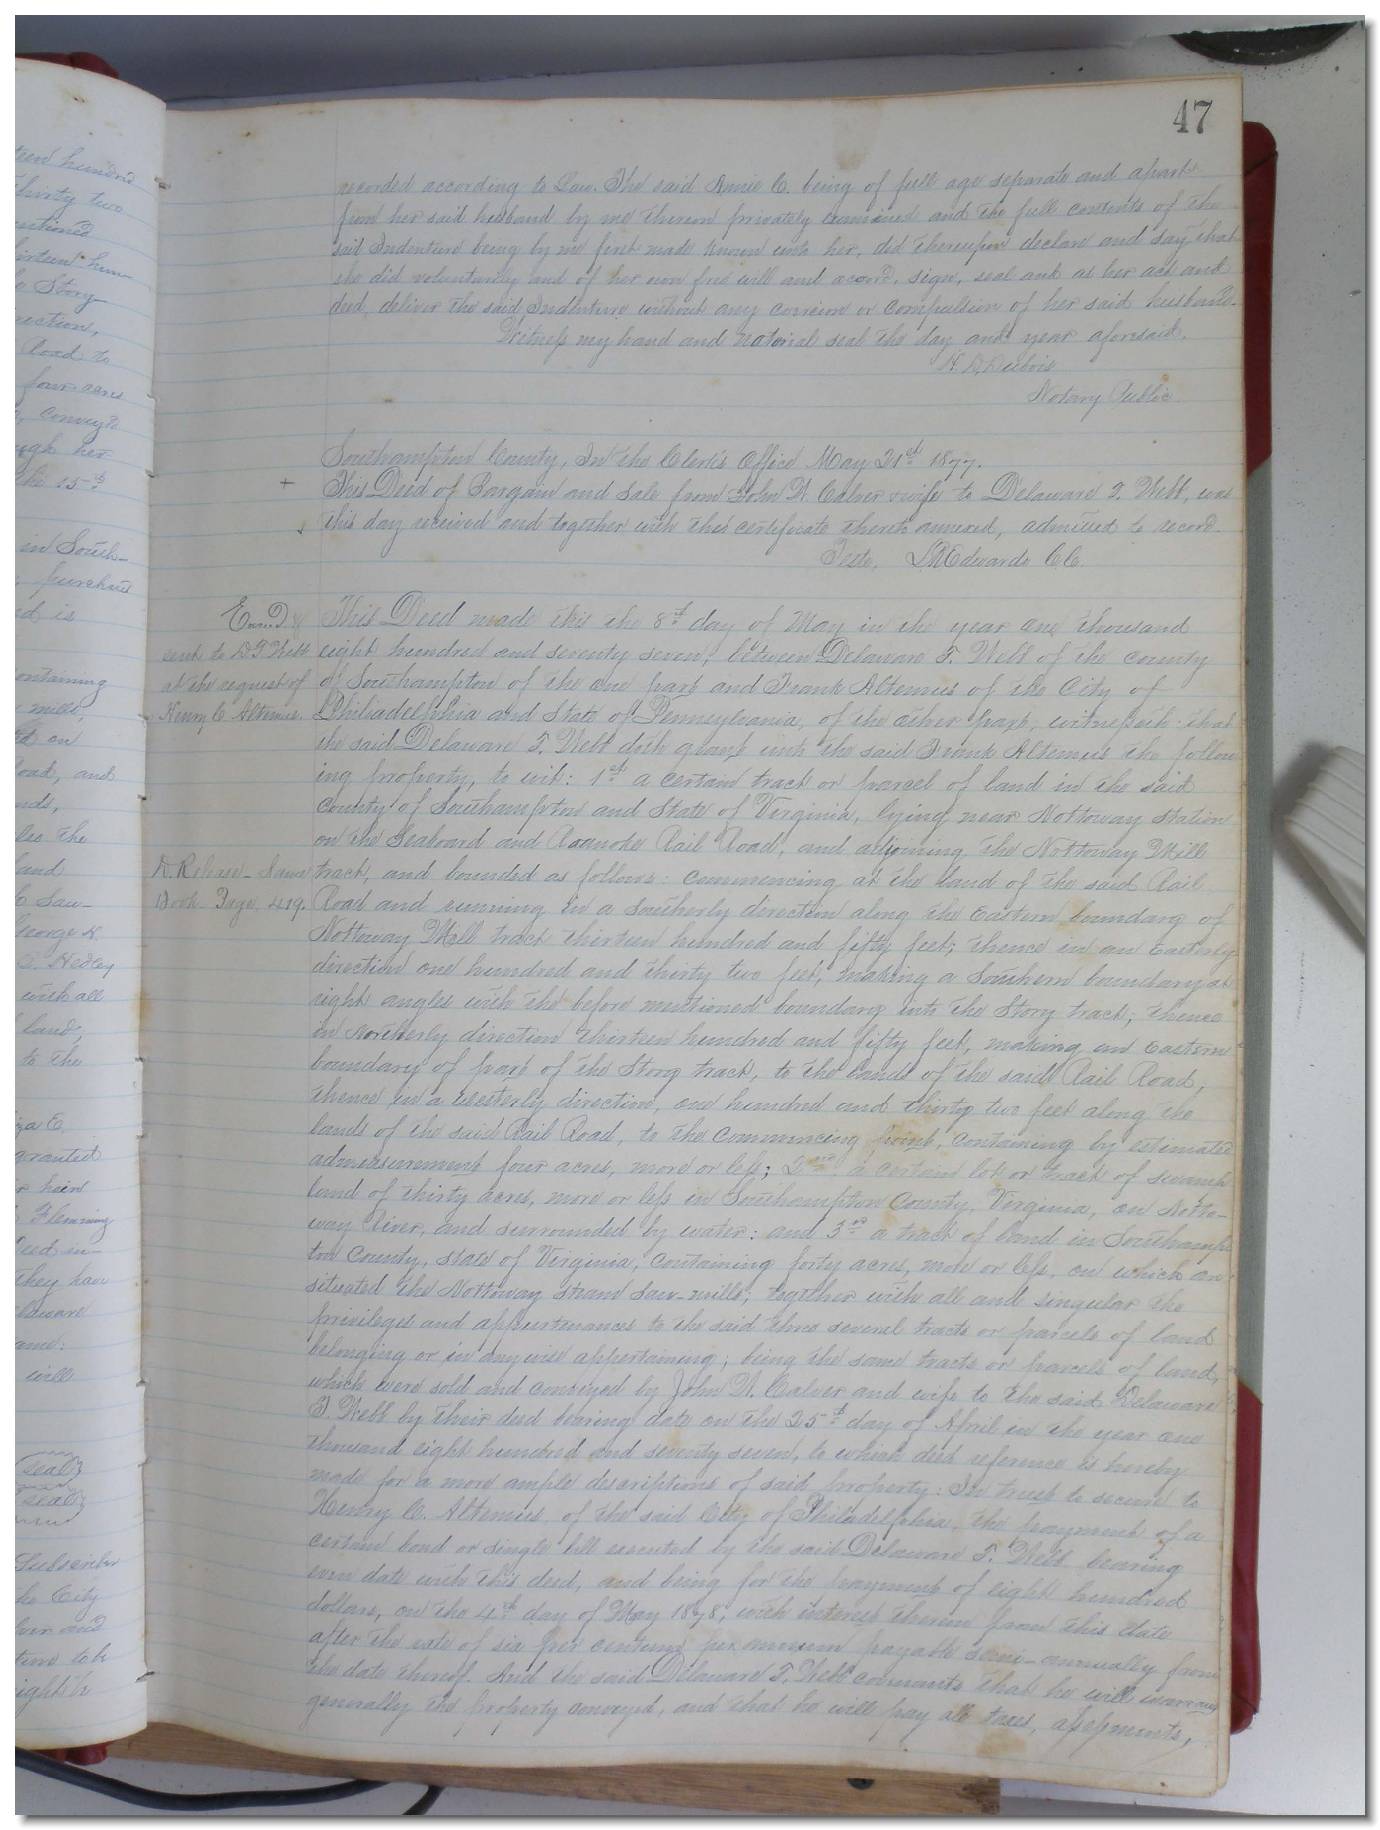 47
recorded according to Law. The said Annie C. being of full age separate and apart
from her said husband by me thereon privately examined and the full contents of the
said Indenture being by me first made known unto her, did thereupon declare and say that
she did voluntarily and of her own free will and accord, sign, seal and as her act and
deed, deliver the said Indenture without any coercion or compulsion of her said husband.
Witness my hand and notorial seal the day and year aforesaid.
Notary Public
Southampton County, In the Clerk's Office May 21st 1877.
This Deed of Bargain and Sale from John W. Calver & wife to Delaware T. Webb, was
this day received and together with the certificate thereto annexed, admitted to record.
Teste, L R Edwards C C.
Exm'd
sent to D T Webb
at the request of
Henry C. Altemus.
This Deed made this the 8th day of May in the year one thousand
eight hundred and seventy seven, between Delaware T. Webb of the county
of Southampton of the one part and Frank Altemus of the City of
Philiadelphia and State of Pennsylvania, of the other part, witnesseth: that
the said Delaware T. Webb doth grant unto the said Frank Altemus the follow
ing property, to wit: 1st a certain track or parcel of land in the said
County of Southampton and State of Virginia, lying near Nottoway Station
on the Seaboard and Roanoke Rail Road, and adjoining the Nottoway Mill
D. Release Same
Book Page 419.
track, and bounded as follows: commencing at the land of the said Rail
Road and running in a Southerly direction along the Eastern boundary of
Nottoway Mill track thirteen hundred and fifty feet; thence in an Easterly
direction one hundred and thirty two feet, making a Southern boundary at
right angles with the before mentioned boundary into the Story track; thence
in Northerly direction thirteen hundred and fifty feet, making an Eastern
boundary of part of the Story track, to the lands of the said Rail Road;
thence in a westerly direction, one hundred and thirty two feet along the
lands of the said Rail Road, to the commencing point, containing by estimated
admeasurement four acres, more or less; 2nd a certain lot or track of swamp
land of thirty acres, more or less in Southampton County, Virginia, on Notto-
way River, and surrounded by water: and 3rd a track of land in Southamp
ton County, state of Virginia, containing forty acres, more or less, on which are
situated the Nottoway steam saw-mills; together with all and singular the
privileges and appurtenances to the said three several tracts or parcels of land
belonging or in anywise appertaining; being the same tracts or parcels of land,
which were sold and conveyed by John W. Calver and wife to the said Delaware
T. Webb by their deed bearing date on the 25th day of April in the year one
thousand eight hundred and seventy seven, to which deed reference is hereby
made for a more ample descriptions of said property: In trust to secure to
Henry C. Altemus, of the said City of Philadelphia, the payment of a
certain bond or single bill executed by the said Delaware T. Webb bearing
even date with this deed, and being for the payment of eight hundred
dollars, on the 4th day of May 1878, with interest thereon from this date
after the rate of six per centum per annum payable semi-annually from
the date thereof. And the said Delaware T. Webb covenants that he will warrant
generally the property conveyed, and that he will pay all taxes, assessments,